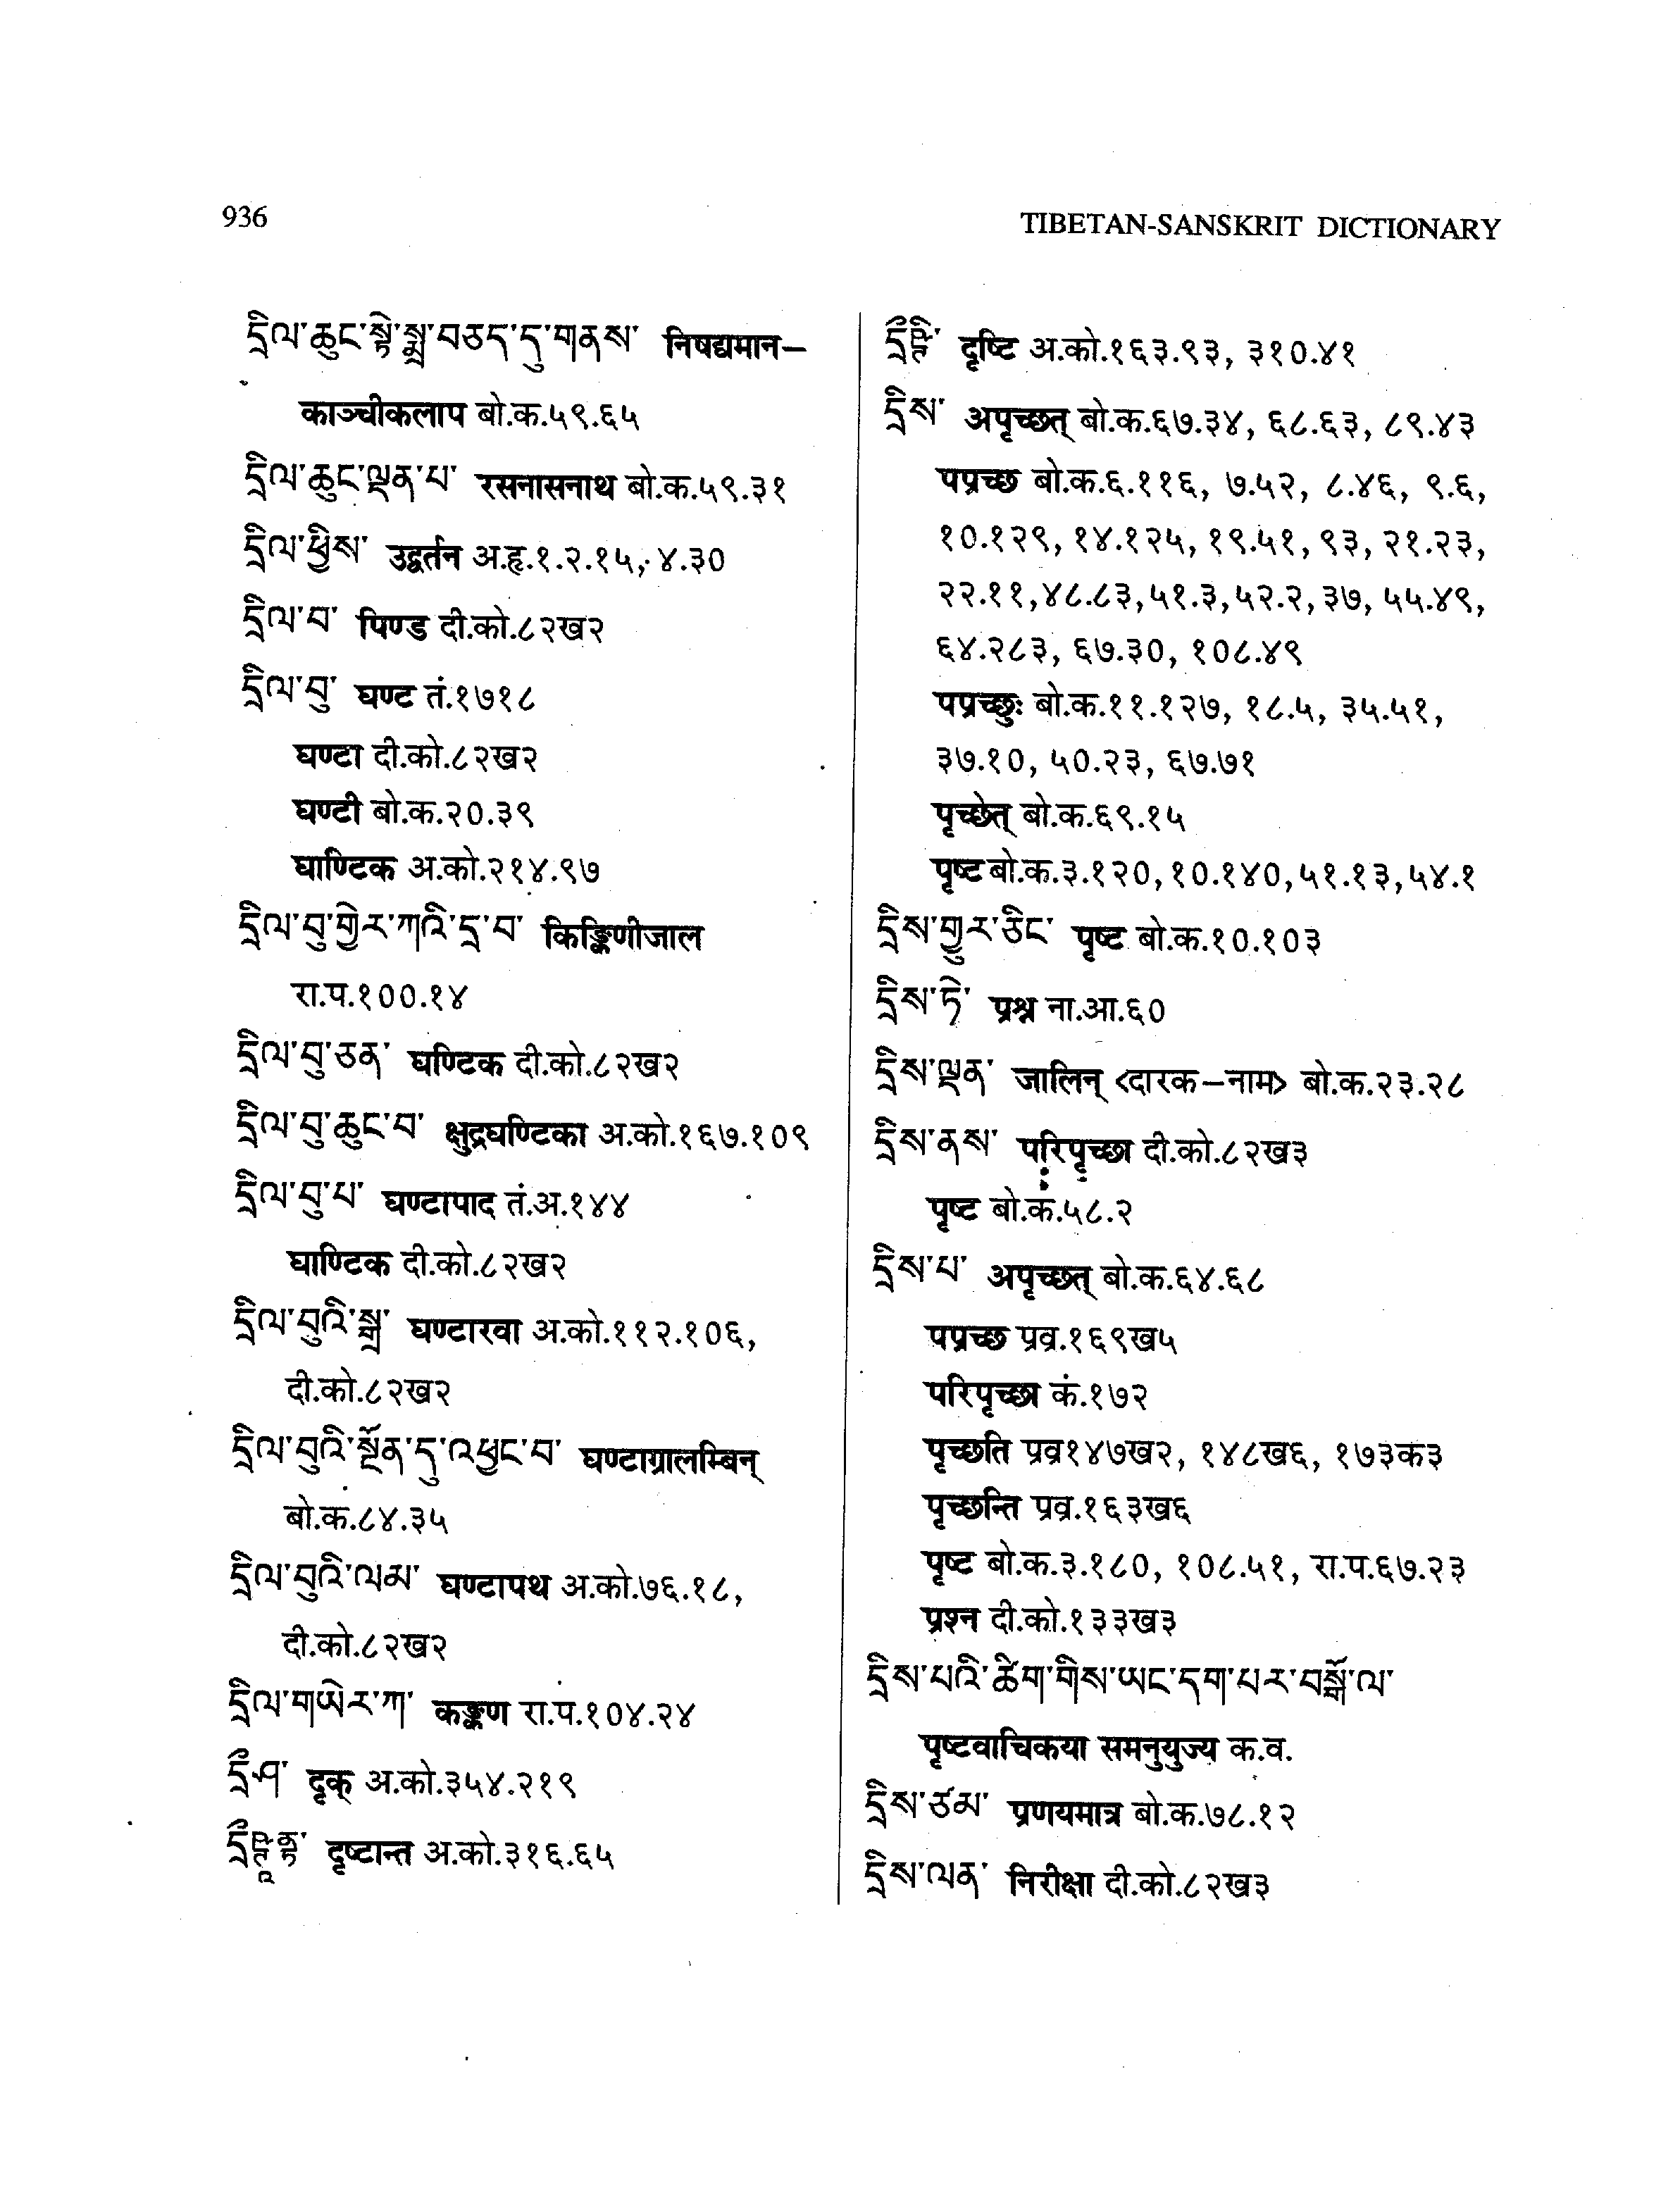 936
TIBETAN-SANSKRIT DICTIONARY
དྲིལ་ཆུང་སྟེ་སྨྲ་བཅད་དུ་གནས་ निषद्यमान–
काञ्चीकलाप बो.क.५९.६५
དྲིལ་ཆུང་ལྡན་པ་ रसनासनाथ बो.क.५९.३१
དྲིལ་ཕྱིས་ उद्वर्तन अ.हृ.१.२.१५, ४.३०
དྲིལ་བ་ पिण्ड दी.को.८२ख२
དྲིལ་བུ་ घण्ट तं.१७१८
घण्टा दी.को.८२ख२
घण्टी बो.क.२०.३९
घाण्टिक अ.को.२१४.९७
དྲིལ་བུ་གྱེར་ཀའི་དྲ་བ་ किङ्किणीजाल
रा.प.१००.१४
དྲིལ་བུ་ཅན་ घण्टिक दी.को.८२ख२
དྲིལ་བུ་ཆུང་བ་ क्षुद्रघण्टिका अ.को.१६७.१०९
དྲིལ་བུ་པ་ घण्टापाद तं.अ.१४४
घाण्टिक दी.को.८२ख२
དྲིལ་བུའི་སྒྲ་ घण्टारवा अ.को.११२.१०६,
दी.को.८२ख२
དྲིལ་བུའི་སྔོན་དུ་འཕྱང་བ་ घण्टाग्रालम्बिन्
बो.क.८४.३५
དྲིལ་བུའི་ལམ་ घण्टापथ अ.को.७६.१८,
दी.को.८२ख२
དྲིལ་གཡེར་ཀ་ कङ्कण रा.प.१०४.२४
དྲྀ་ཤ་ दृक् अ.को.३५४.२१९
དྲྀཥྚཱནྟ་ दृष्टान्त अ.को.३१६.६५
དྲྀཥྚི་ दृष्टि अ.को.१६३.९३, ३१०.४१
དྲིས་ अपृच्छत् बो.क.६७.३४, ६८.६३, ८९.४३
पप्रच्छ बो.क.६.११६, ७.५२, ८.४६, ९.६,
१०.१२९, १४.१२५, १९.५१, ९३, २१.२३,
२२.११,४८.८३,५१.३,५२.२,३७, ५५.४९,
६४.२८३, ६७.३०, १०८.४९
पप्रच्छुः बो.क.११.१२७, १८.५, ३५.५१,
३७.१०, ५०.२३, ६७.७१
पृच्छेत् बो.क.६९.१५
पृष्ट बो.क.३.१२०,१०.१४०,५१.१३,५४.१
དྲིས་གྱུར་ཅིང་ पृष्ट बो.क.१०.१०३
དྲིས་ཏེ་ प्रश्न ना.आ.६०
དྲིས་ལྡན་ जालिन् <दारक–नाम> बो.क.२३.२८
དྲིས་ནས་ परिपृच्छा दी.को.८२ख३
पृष्ट बो.क.५८.२
དྲིས་པ་ अपृच्छत् बो.क.६४.६८
पप्रच्छ प्रव्र.१६९ख५
परिपृच्छा कं.१७२
पृच्छति प्रव्र१४७ख२, १४८ख६, १७३क३
पृच्छन्ति प्रव्र.१६३ख६
पृष्ट बो.क.३.१८०, १०८.५१, रा.प.६७.२३
प्रश्न दी.को.१३३ख३
དྲིས་པའི་ཚིག་གིས་ཡང་དག་པར་བསྒོ་ལ་
पृष्टवाचिकया समनुयुज्य क.व.
དྲིས་ཙམ་ प्रणयमात्र बो.क.७८.१२
དྲིས་ལན་ निरीक्षा दी.को.८२ख३